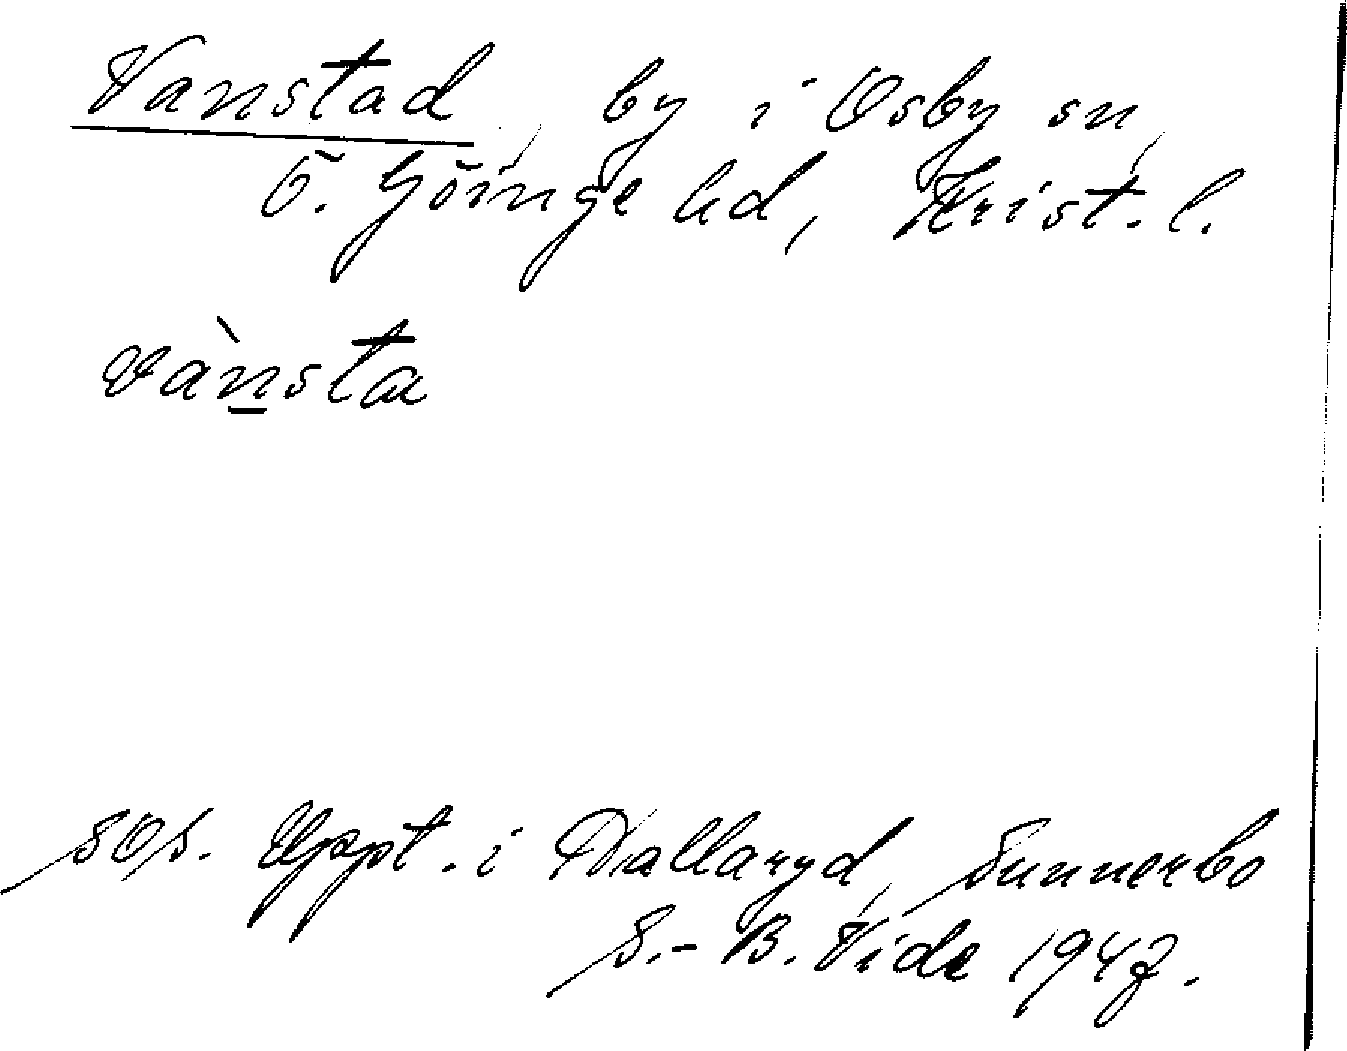 Vanstad, by i Osby sn,
Ö. Göinge hd, Krist. l.
vànsta
sos. Uppt. i Hallaryd, Sunnerbo
S.-B. Vide 1947.